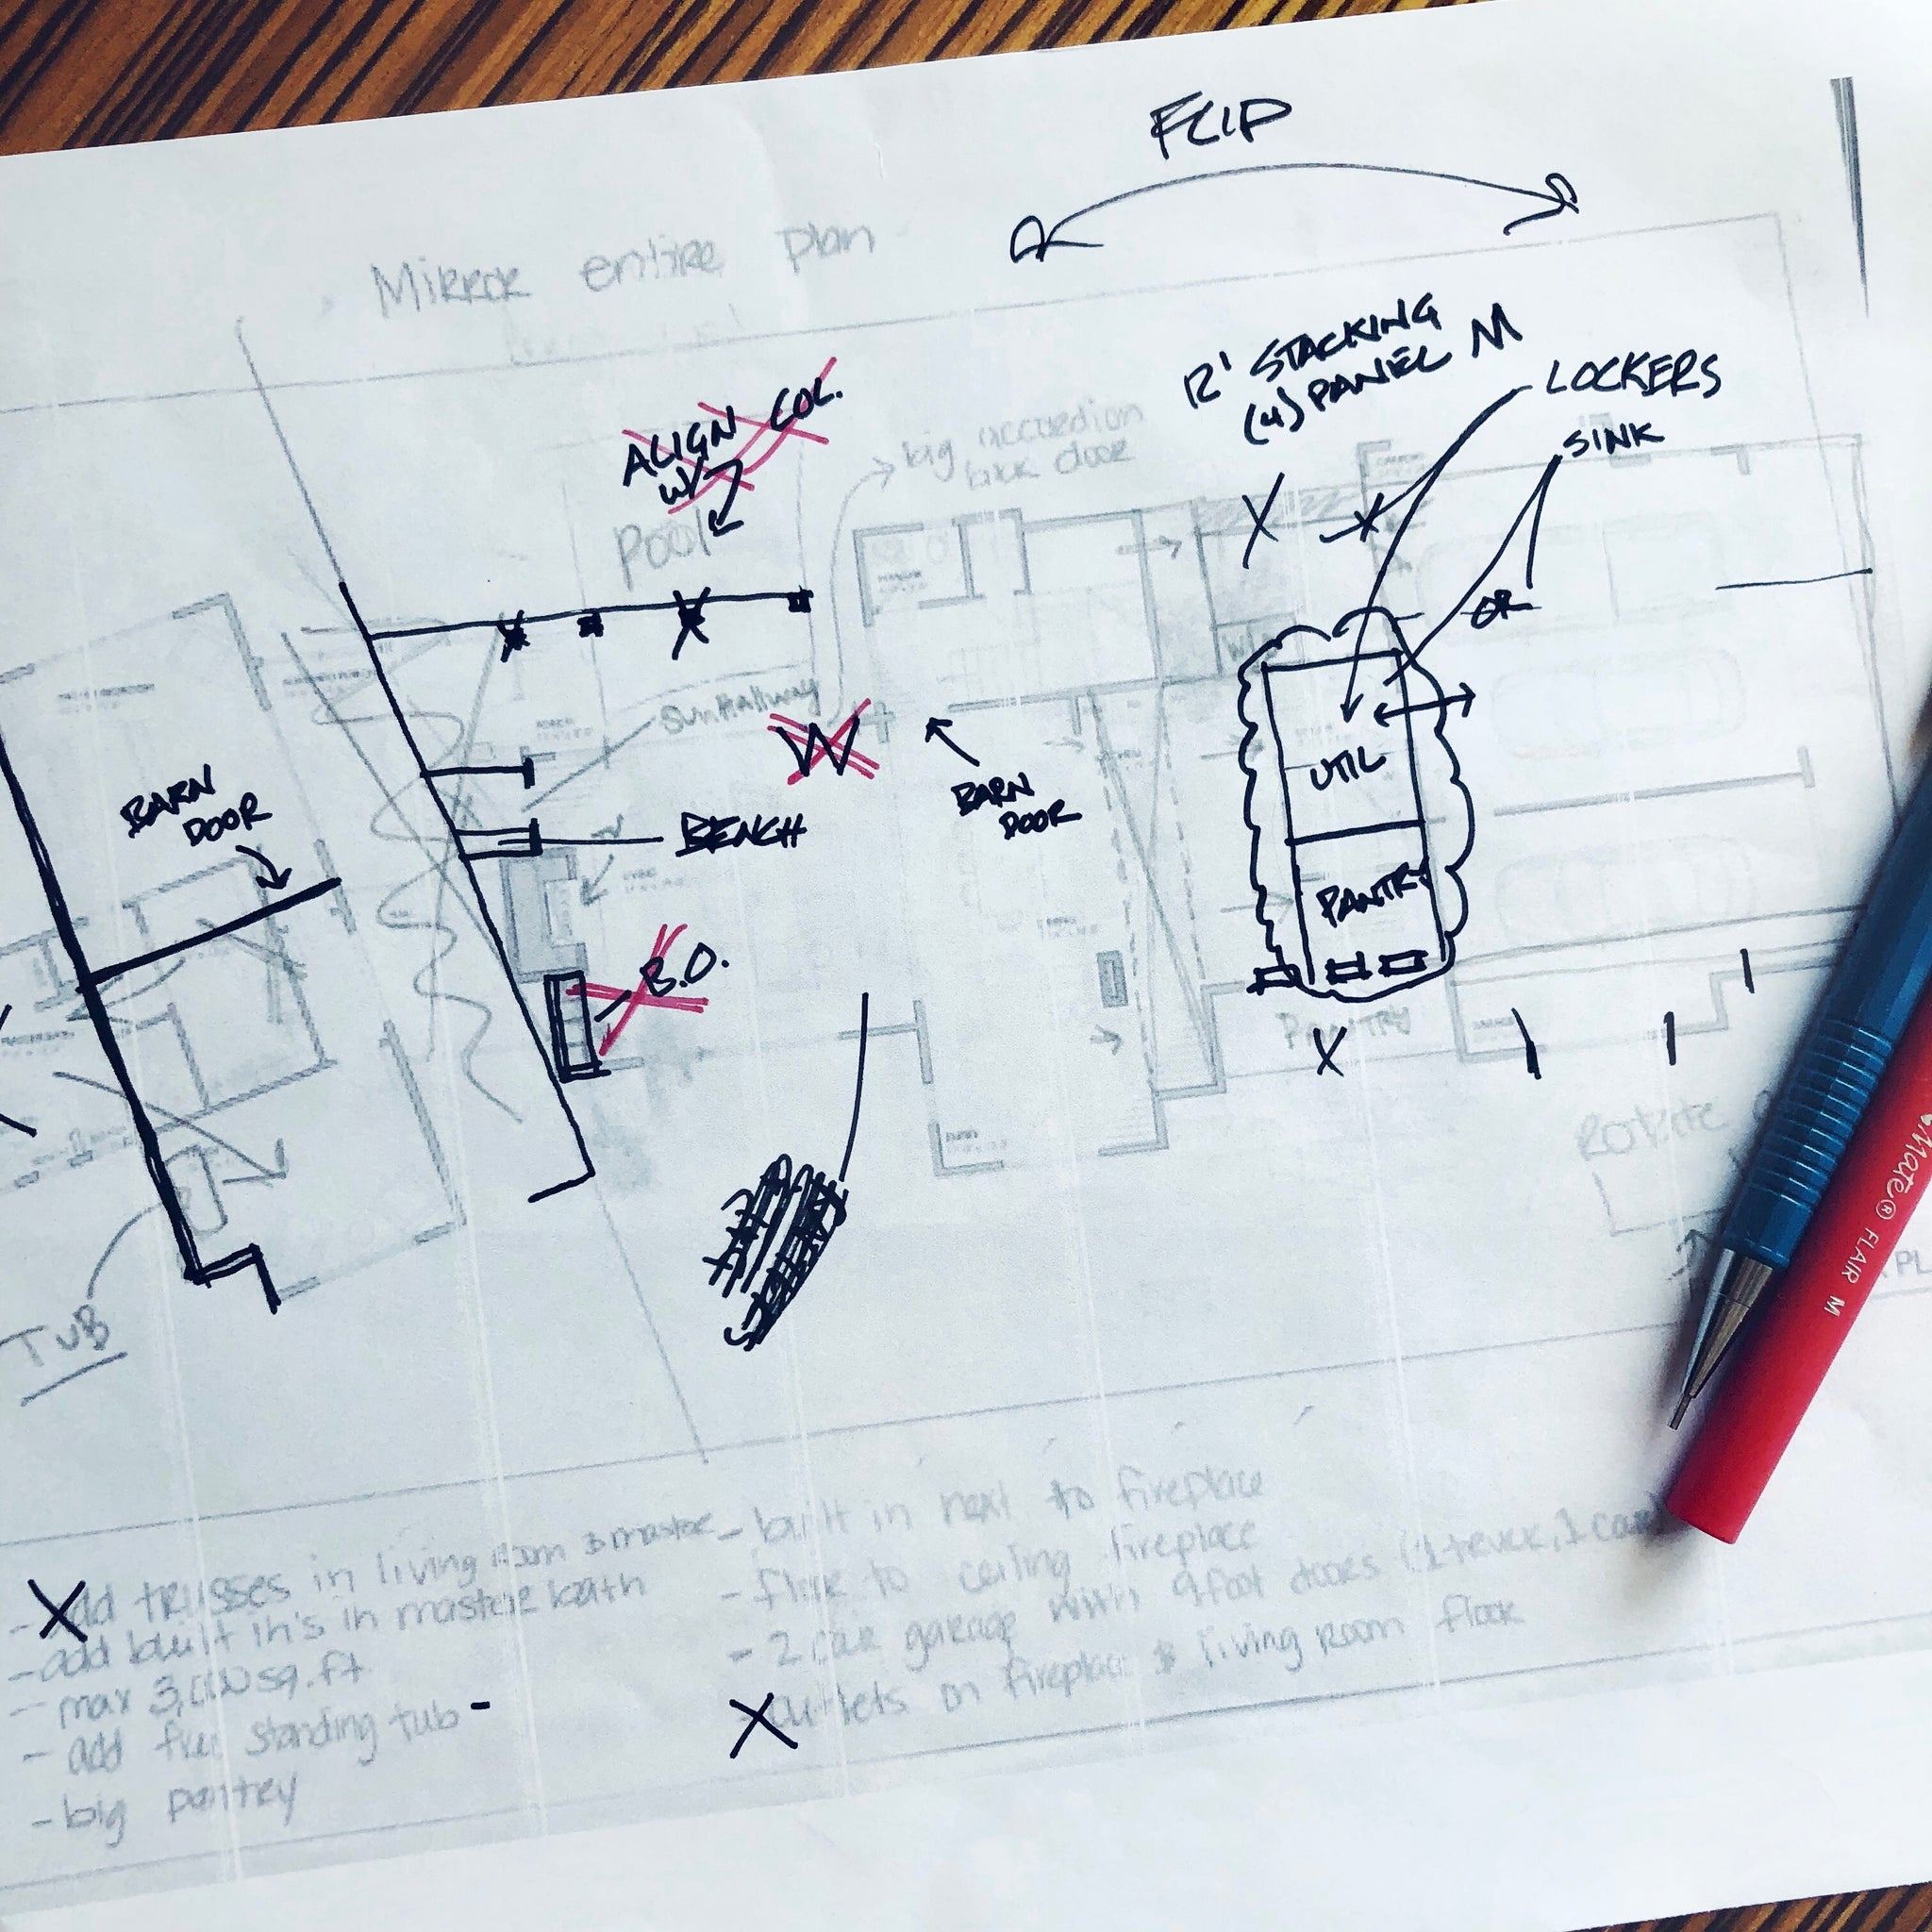 FLIP
Mirror entire plan
12' STACKING
(4) PANEL M
LOCKERS
SINK
ALIGN
w/ COL.
big accordion
back door
POOL
OR
Sun Hallway
W
UTIL
BARN
DOOR
BARN
DOOR
BENCH
PANTRY
B.O.
PANTRY
Rotate
TUB
Mate® FLAIR M
- add trusses in living room & master
- add built in's in master bath
- max sq.ft
- add free standing tub -
- big pantry
- built in next to fireplace
- floor to ceiling fireplace
- 2 car garage with 9 foot doors (1 truck, 1 car)
- outlets on fireplace & living room floor